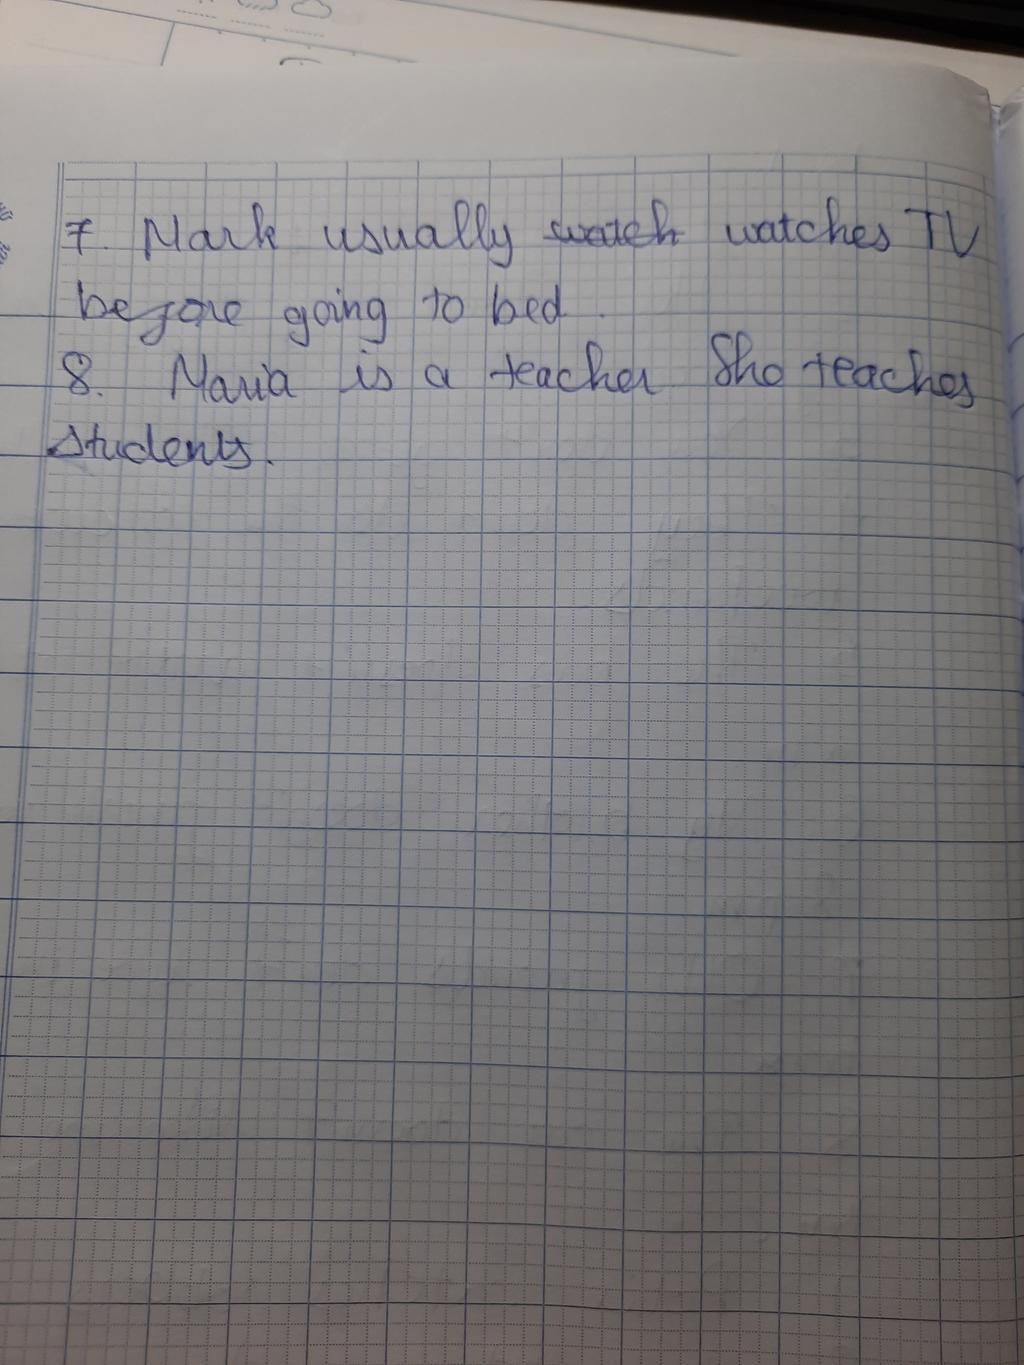 7. Mark usually watch watches TV
before going to bed.
8. Maria is a teacher She teaches
students.